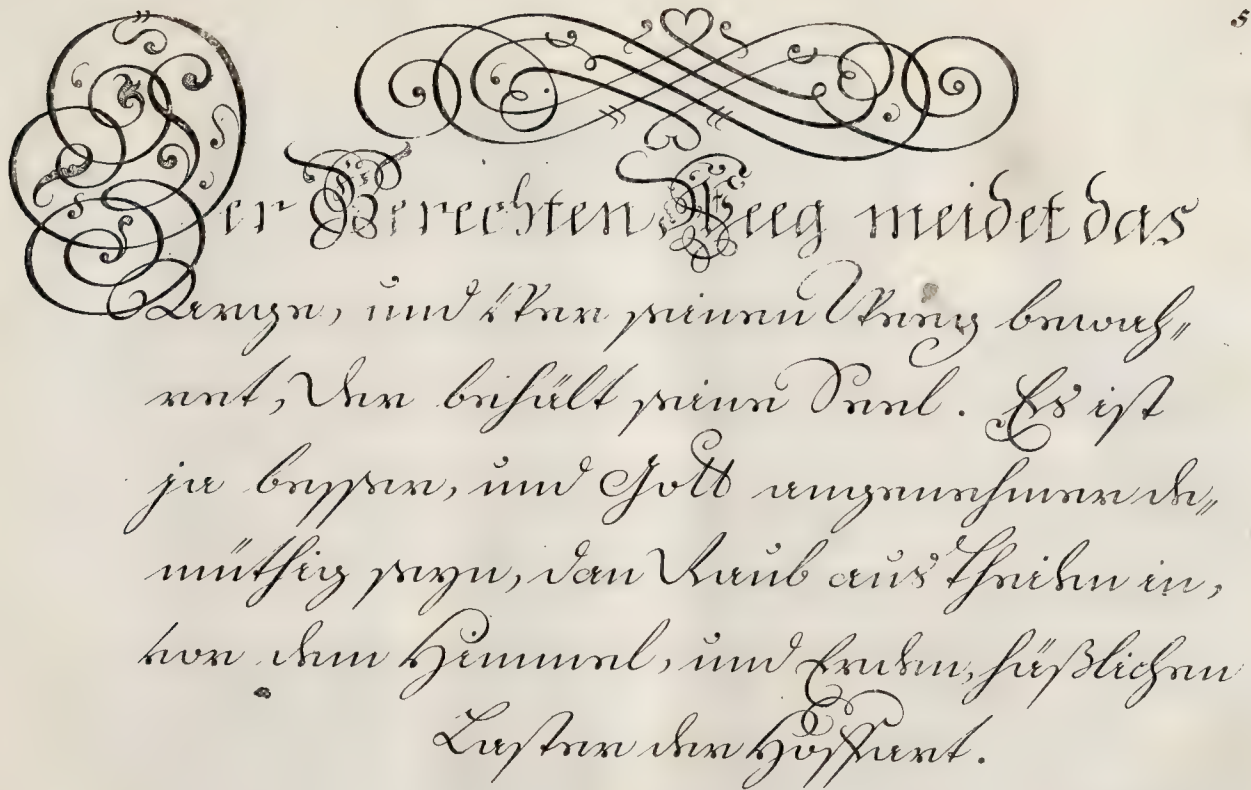 5
Der Gerechten Weeg meidet das
Arge, und Wer seinen Weeg bewah„
ret, Der behält seine Seel. Es ist
ja besser, und Gott angenehmer de„
müthig seyn, dan Raub aus Theilen in,
vor dem Himmel, und Erden, häßlichen
Laster der Hoffart.